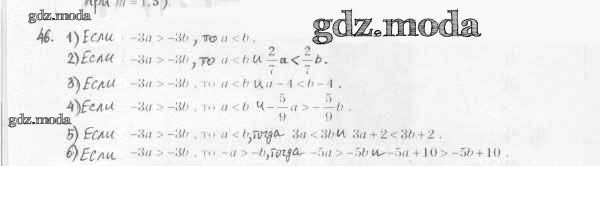 при m = 1,5).
gdz.moda
gdz.moda
46. 1) Если -3a > -3b, то a < b.
2) Если -3a > -3b, то a < b и 2/7 a < 2/7 b.
3) Если -3a > -3b, то a < b и a - 4 < b - 4.
4) Если -3a > -3b, то a < b и -5/9 a > -5/9 b.
gdz.moda
5) Если -3a > -3b, то a < b, тогда 3a < 3b и 3a + 2 < 3b + 2.
6) Если -3a > -3b, то -a > -b, тогда -5a > -5b и -5a + 10 > -5b + 10.